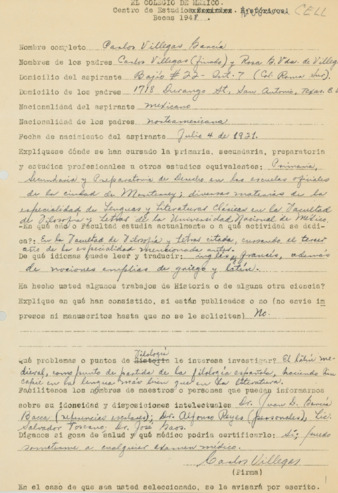 EL COLEGIO DE MEXICO.
Centro de Estudios
CELL
Becas 194
Nombre completo Carlos Villegas García
Nombres de los padres Carlos Villegas (finado) y Rosa G. Vda. de Villegas
Domicilio del aspirante Bajío # 22 - Int. 7 (Col. Roma Sur).
Domicilio de los padres 1718 Durango St., San Antonio, Texas, E.
Nacionalidad del aspirante mexicano
Nacionalidad de los padres norteamericana
Fecha de nacimiento del aspirante Julio 4 de 1921.
Explíquese dónde se han cursado la primaria, secundaria, preparatoria
y estudios profesionales u otros estudios equivalentes: Primaria,
Secundaria y Preparatoria de Derecho en las escuelas oficiales
de la ciudad de Monterrey; diversas materias de la
especialidad de Lenguas y Literaturas Clásicas en la Facultad
de Filosofía y Letras de la Universidad Nacional de México
¿En qué año o facultad estudia actualmente o a qué actividad se dedi-
ca?: En la Facultad de Filosofía y Letras citada, cursando el tercer
año de la especialidad mencionada antes.
De qué idiomas puede leer y traducir: inglés, francés, además
de nociones amplias de griego y latín.
Ha hecho usted algunos trabajos de Historia o de alguna otra ciencia?
Explique en qué han consistido, si están publicados o no (no envíe im-
presos ni manuscritos hasta que no se le solicite) No.
Filología
Qué problemas o puntos de Historia le interesa investigar? El latín me-
dieval, como punto de partida de la filología española, haciendo hin-
capié en la lengua más bien que en la literatura.
Facilítenos los nombres de maestros o personas que puedan informarnos
sobre su idoneidad y disposiciones intelectuales Dr. Juan D. García
Bacca (referencias escolares); Dr. Alfonso Reyes (personales), Lic.
Salvador Toscano, Dr. José Gaos.
Díganos si goza de salud y qué médico podría certificarlo: Sí; puedo
someterme a cualquier examen médico.
Carlos Villegas
(firma)
En el caso de que sea usted seleccionado, se le avisará por escrito.